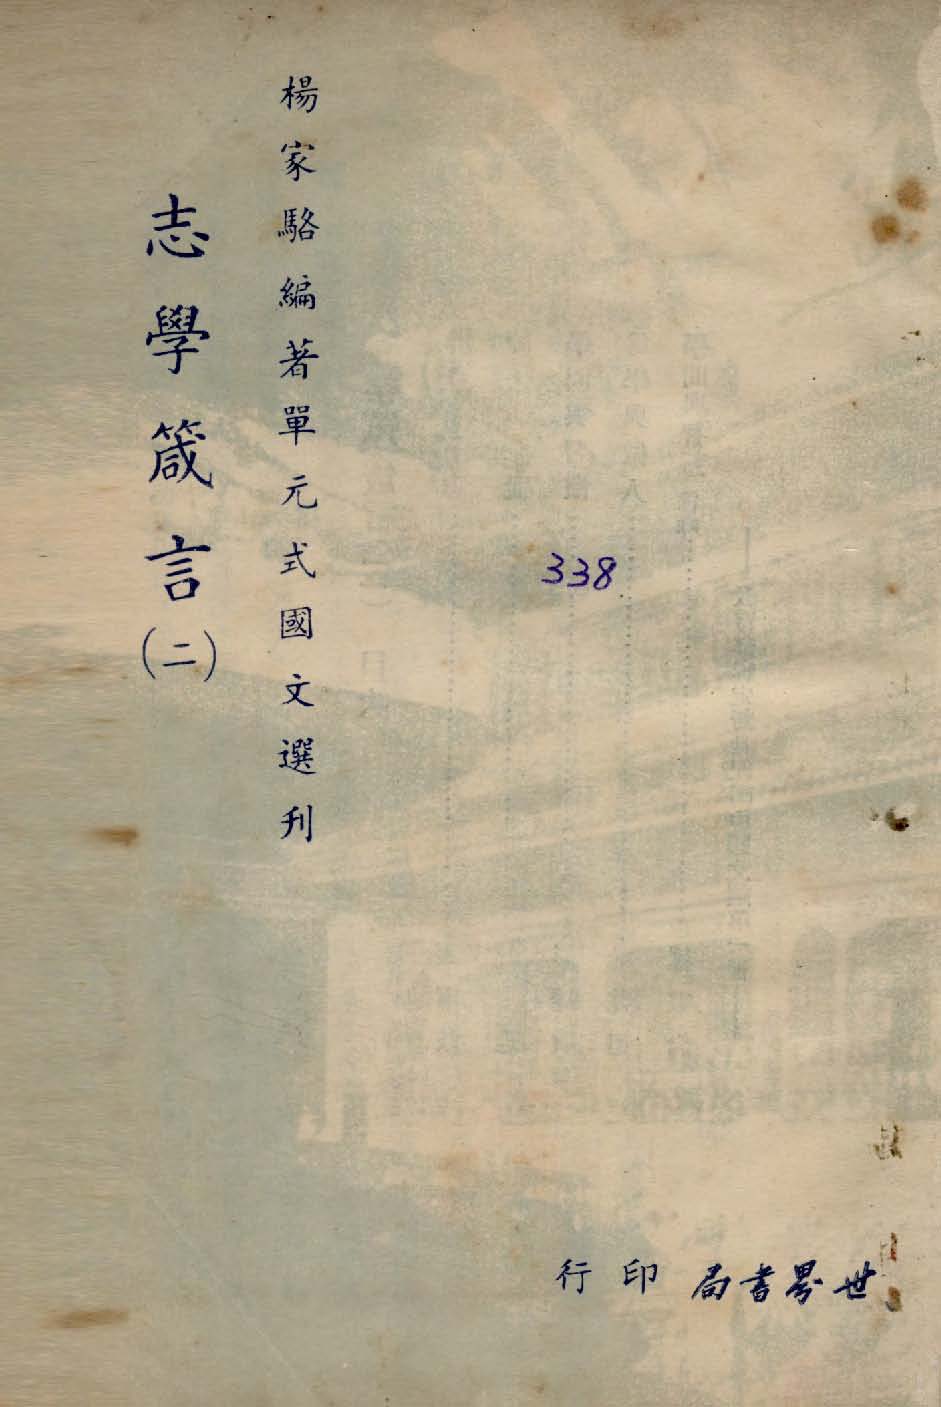 楊家駱編著單元式國文選刊
志學箴言(二)
338
世界書局印行